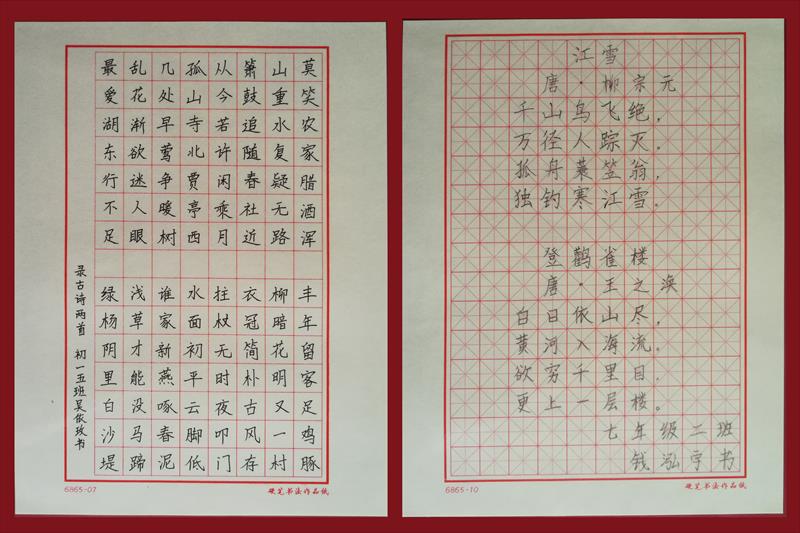 莫笑农家腊酒浑 丰年留客足鸡豚
山重水复疑无路 柳暗花明又一村
箫鼓追随春社近 衣冠简朴古风存
从今若许闲乘月 拄杖无时夜叩门
孤山寺北贾亭西 水面初平云脚低
几处早莺争暖树 谁家新燕啄春泥
乱花渐欲迷人眼 浅草才能没马蹄
最爱湖东行不足 绿杨阴里白沙堤
录古诗两首 初一五班吴依玫书
6865-07
硬笔书法作品纸
江雪
唐·柳宗元
千山鸟飞绝,
万径人踪灭。
孤舟蓑笠翁,
独钓寒江雪。
登鹳雀楼
唐·王之涣
白日依山尽,
黄河入海流。
欲穷千里目,
更上一层楼。
七年级二班
钱泓宇书
6865-10
硬笔书法作品纸